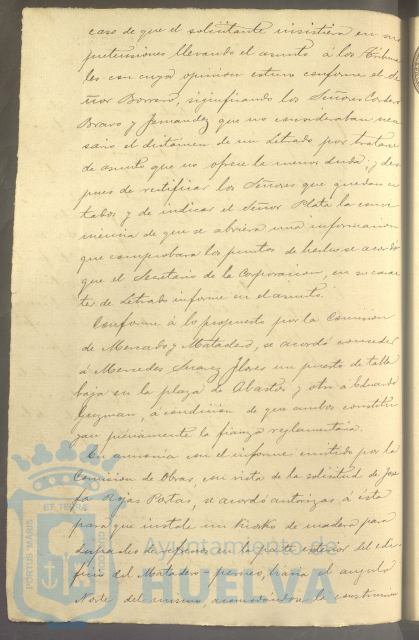 caso de que el solicitante insistiera en sus
pretensiones llevando el asunto á los Tribuna-
les con cuya opinion estuvo conforme el Se-
ñor Borrero, significando los Señores Cordero
Bravo y Fernandez que no consideraban nece-
sario el dictamen de un Letrado por tratarse
de asunto que no ofrece la menor duda; y des-
pues de rectificar los Señores que quedan ci-
tados y de indicar el Señor Plata la conve-
niencia de que se abriera una informacion
que comprobara los puntos de hecho se acordó
que el Secretario de la Corporacion, en su cuali-
de Letrado informe en el asunto.
Conforme á lo propuesto por la Comision
de Mercado y Matadero, se acordó conceder
á Mercedes Suarez Flores un puesto de tabla
baja en la plaza de Abastos y otro a Eduardo
Guzman, a condicion de que ambos constitu-
yan previamente la fianza reglamentaria.
En armonia con el informe emitido por la
Comision de Obras, con vista de la solicitud de Jose-
fa Rojas Portas, se acordó autorizar á esta
para que instale un kiosko de madera para
despacho de refrescos en la parte exterior del edi-
ficio del Matadero, hacia el angulo
Norte del mismo, acomodandose la construccion
PORTUS MARIS ET TERRÆ
Ayuntamiento de
HUELVA